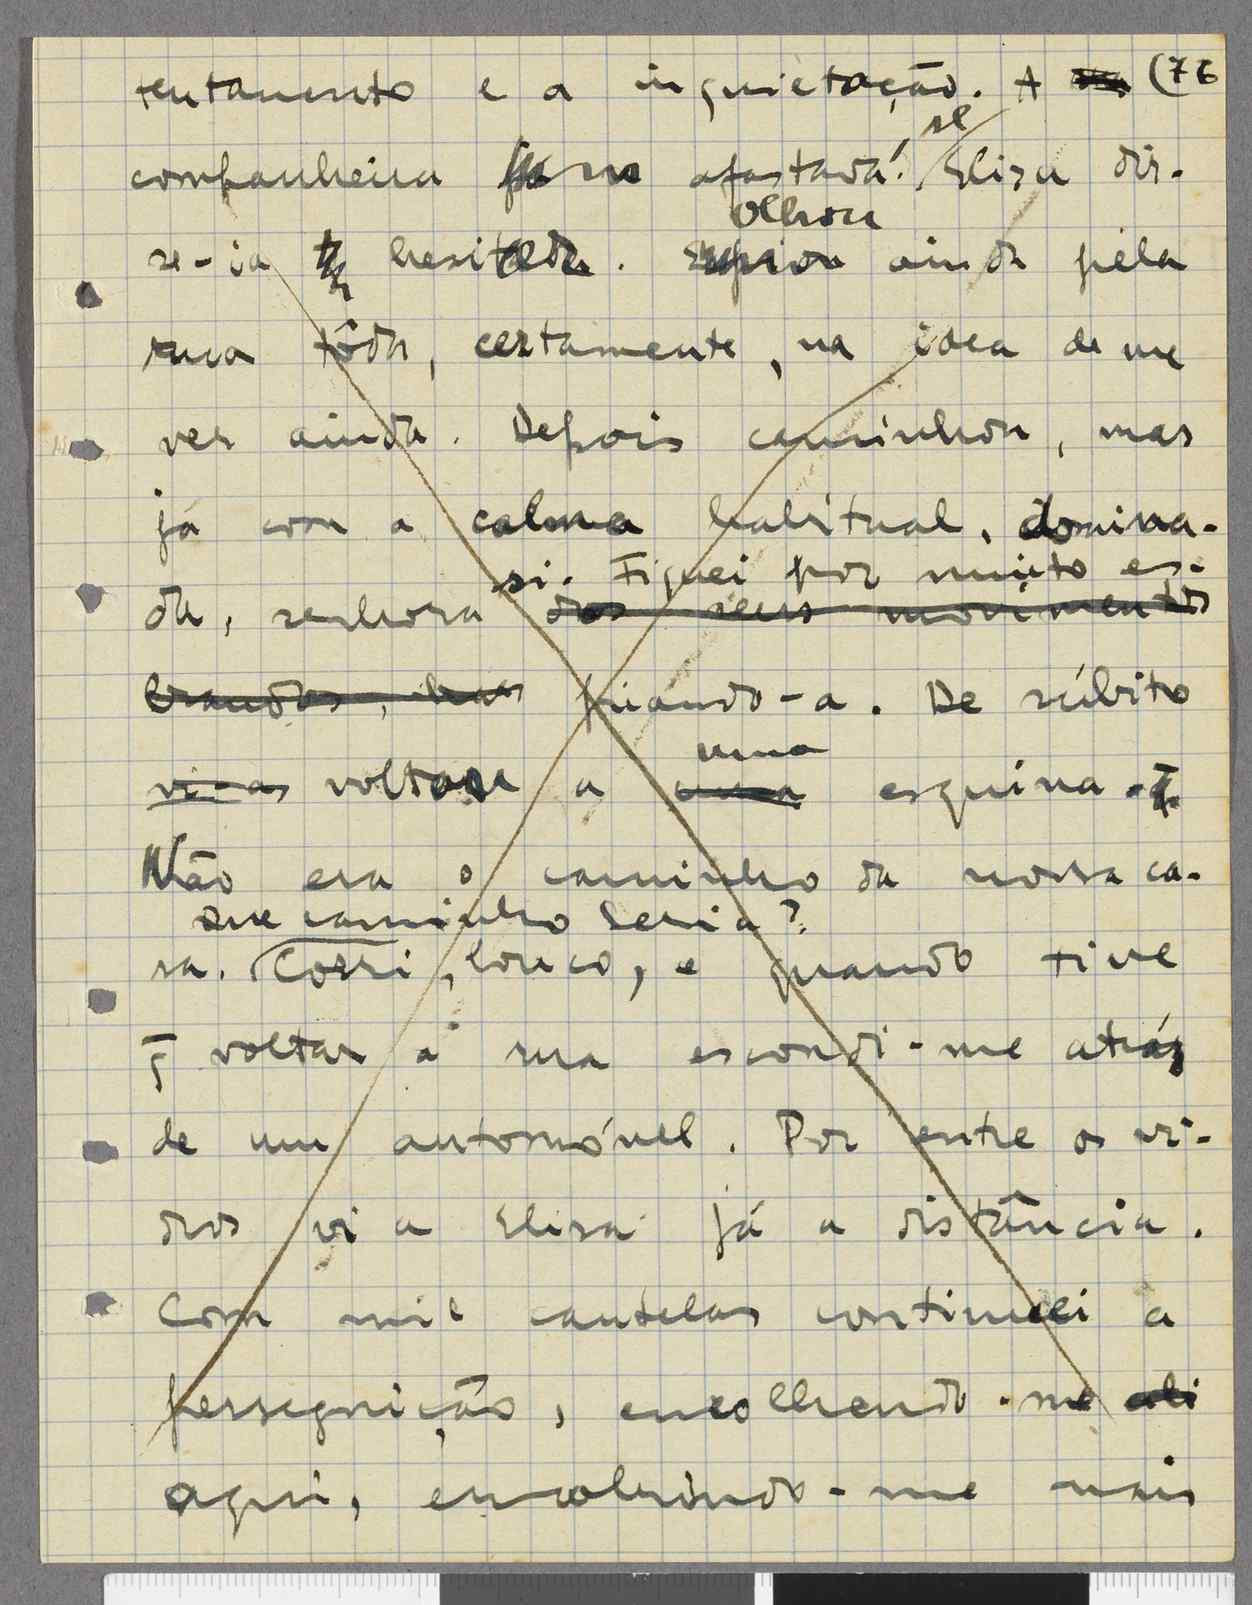 tentamento e a inquietação. A (76
se
companheira afastada! Elisa dir-
olhou
se-ia hesitada. ainda pela
rua tôda, certamente, na idea de me
ver ainda. Depois caminhou, mas
já com a calma habitual, domina-
si. Fiquei por muito es-
da, senhora dos seus movimentos
brandos, mas piando-a. De súbito
uma
vi-a voltou a uma esquina.
Não era o caminho da nossa ca-
Que caminho seria?
sa. Corri, louco, e quando tive
q̃ voltar á rua escondi-me atrás
de um automóvel. Por entre os vi-
dros vi a Elisa já a distância.
Com mil cautelas continuei a
perseguição, encolhendo-me ali
aqui, encobrindo-me mais